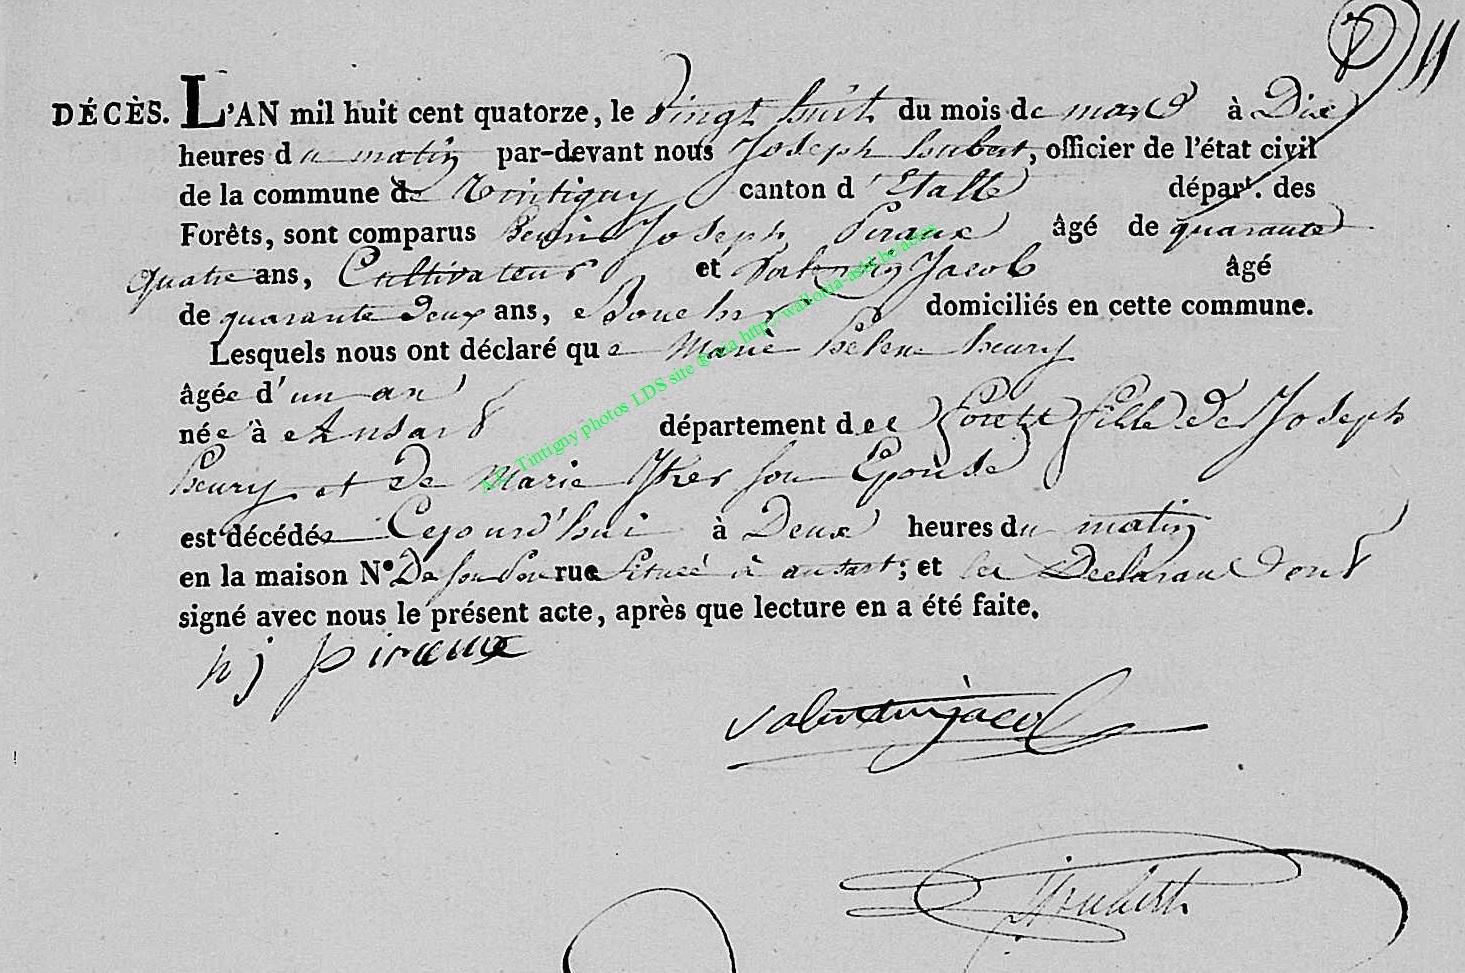 11
DÉCÈS. L'AN mil huit cent quatorze, le vingt huit du mois de mars à Dix
heures du matin par-devant nous Joseph hubert, officier de l'état civil
de la commune de Tintigny canton d'Etalle départ. des
Forêts, sont comparus henri Joseph Piraux âgé de quarante
quatre ans, Cultivateur et Valentin Jacob âgé
de quarante deux ans, domiciliés en cette commune.
Lesquels nous ont déclaré que Marie hélene henry
âgée d'un an
née à Ansart département des forêts fille de Joseph
henry et de Marie son Epouse
est décédée Cejourd'hui à Deux heures du matin
en la maison N° De son rue située à ansart; et les Declarans ont
signé avec nous le présent acte, après que lecture en a été faite.
hj piraux
valentin jacob
JHoubert
AE Tintigny photos LDS site @ via http://wallonia-asbl.be/actes